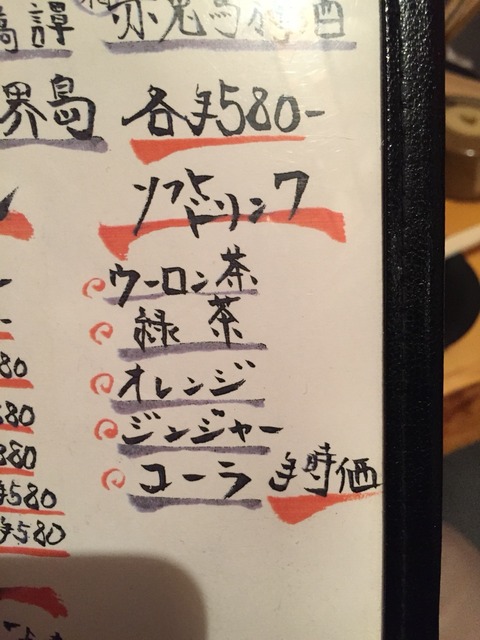 譚
赤鬼馬梅酒
界島
各¥580-
ソフトドリンク
ウーロン茶
緑茶
オレンジ
ジンジャー
コーラ ¥時価
80
580
880
¥580
¥580